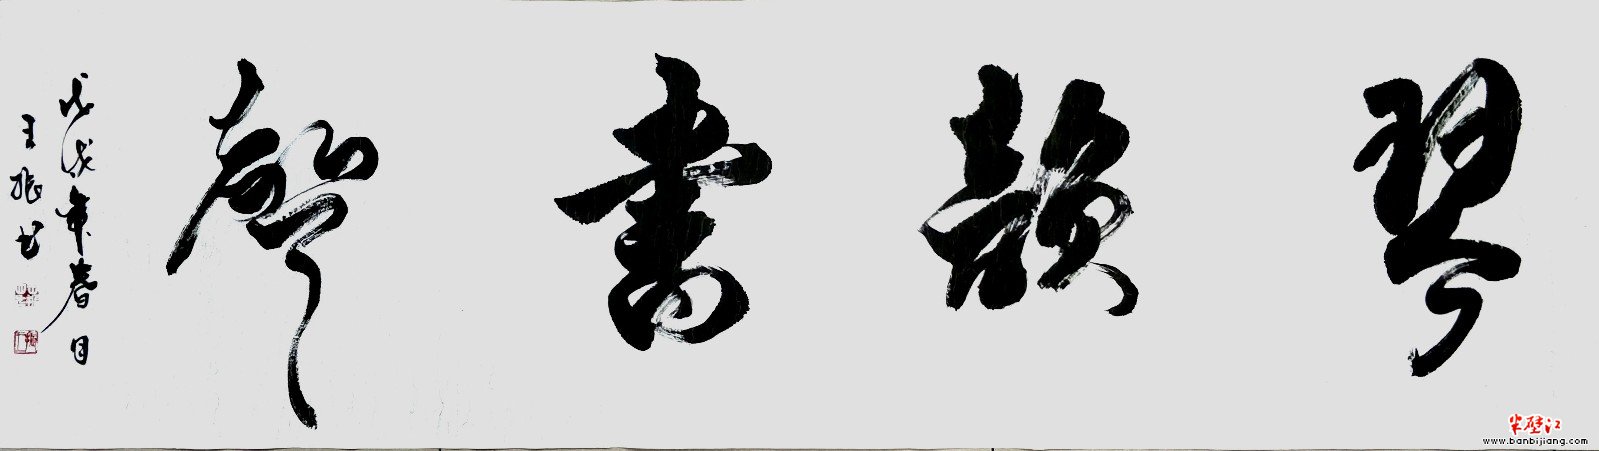 琴韻書聲
戊戌年春月
王振书
半壁江
www.banbijiang.com